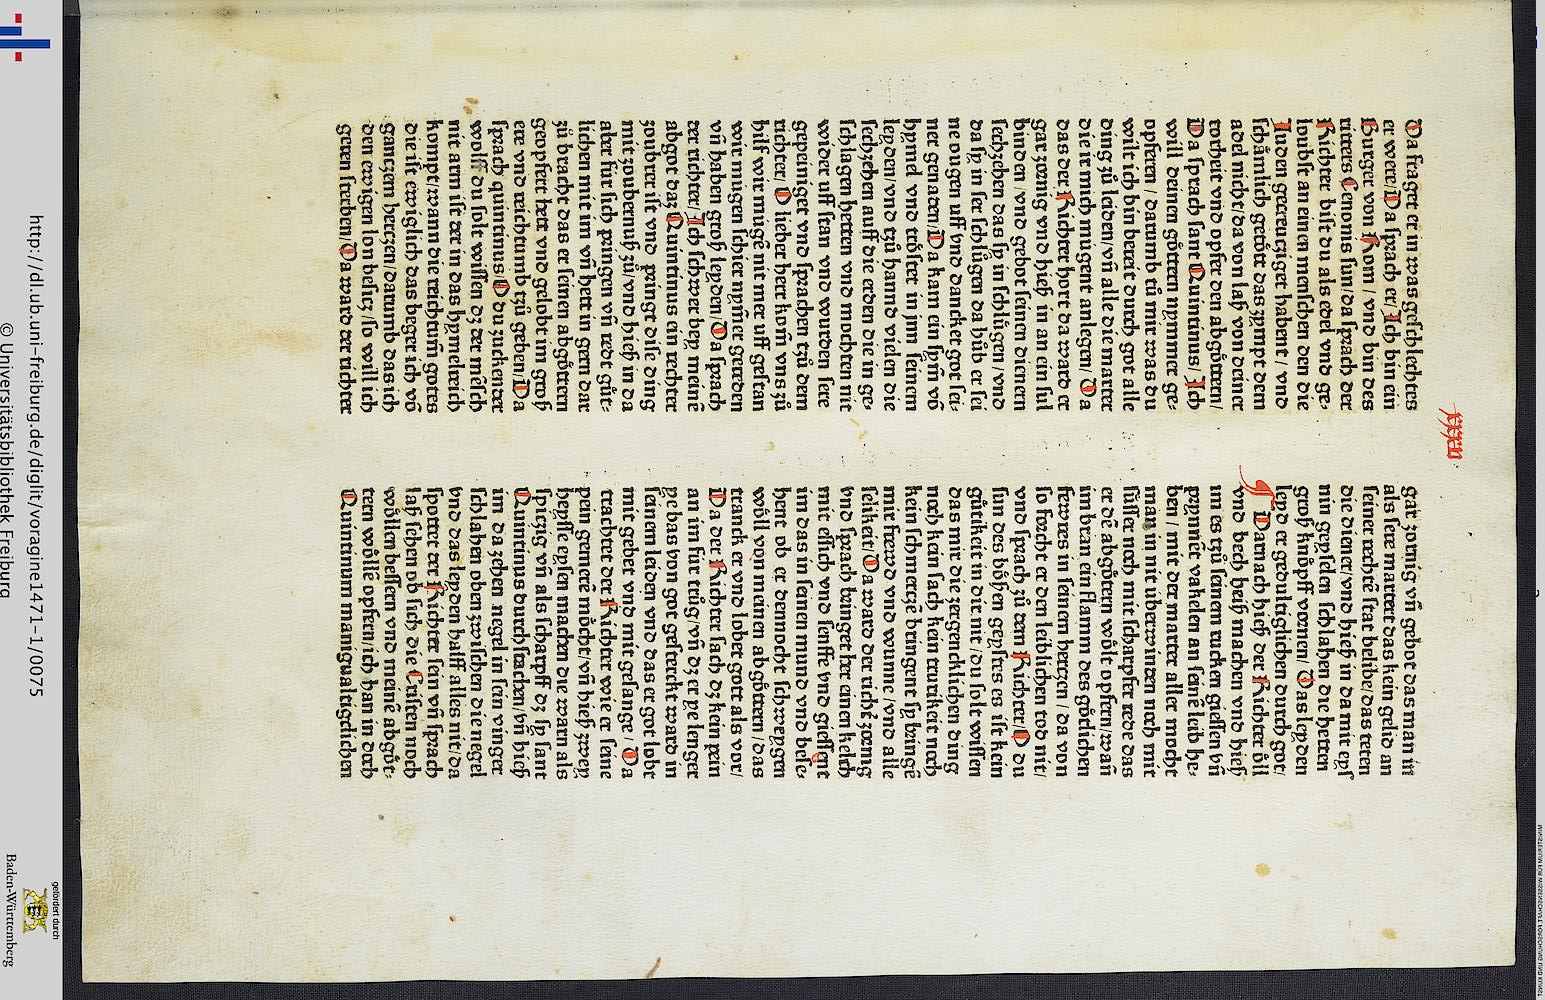 xxxv
Da fraget er in was geschlechtes
er were/Da sprach er/Ich bin ein
Burger von Rom/vnd bin des
ritters Cenonis sun/da sprach der
Richter bist du als edel vnd ge-
loubst an einen menschen den die
Iuden gecreutziget habent/vnd
schåmlich getött das zympt dem
adel nicht/da von laß von deiner
torheit vnd opfer den abgöttern/
Da sprach sant Quintinus/Ich
will deinen göttern nymmer ge-
opfferen/darumb tů mir was du
wilt ich bin bereit durch got alle
ding zů leiden/vñ alle die marter
die ir mich mügent anlegen/Da
das der Richter hort da ward er
gar zornig vnd hieß in an ein sul
binden/vnd gebot seinen dienern
sechzehen das sy in schlůgen/vnd
da sy in ser schlůgen da hůb er sei
ne ougen uff vnd dancket got sei-
ner genaden/Da kam ein stym võ
hymel vnd tröstet in jnn seinem
leyden/vnd tzů hannd vielen die
sechzehen auff die erden die in ge-
schlagen hetten vnd mochten nit
wider uff stan vnd wurden sere
gepeiniget vnd sprachen tzů dem
richter/O lieber herr kom̃ vns zů
hilf wir mugẽ nit mer uff gestan
wir mugen schier nym̃er gereden
vñ haben groß leyden/Da sprach
der richter/Ich schwer bey meinẽ
abgot daz Quintinus ein rechter
zoubrer ist vnd pringt dise ding
mit zoubernuß zů/vnd hieß in da
aber für sich pringen vñ redt güt-
lichen mit im vñ hett in gern dar
zů bracht das er seinen abgöttern
geopfert hett vnd gelobt im groß
ere vnd reichtumb tzů geben/Da
sprach quintinus/O du zuckender
wolff du solt wissen dz der mẽsch
nit arm ist der in das hymelreich
kompt/wann die reichtum̃ gottes
die ist ewiglich das beger ich võ
gantzem hertzen/darumb das ich
den ewigen lon besitz/so will ich
geren sterben/Da ward der richter
gar zornig vñ gebot das man in
als sere martert das kein gelid an
seiner rechtẽ stat belibe/das teten
die diener/vnd hieß in da mit eys
nin geyslen schlahen die hetten
groß knöpff vornen/Das leyden
leyd er gedultiglichen durch got/
Darnach hieß der Richter öll
vnd bech heiß machen vnd hieß
im es tzů seinem rucken giessen vñ
prynnẽt vakelen an seinẽ leib he-
ben/mit der marter aller mocht
man in nit überwinden noch mit
süsser noch mit scharpfer rede das
er dẽ abgöttern wölt opfern/wañ
im bran ein flamm des götlichen
fewres in seinem hertzen/da von
so forcht er den leiblichen tod nit/
vnd sprach zů dem Richter/O du
sun des bösen geystes es ist kein
gütikeit in dir nit/du solt wissen
das mir die zergencklichen ding
noch kein sach kein trurikeit noch
kein schmertzẽ bringent sy bringẽ
mir frewd vnd wunne/vnd alle
selikeit/Da ward der richter zornig
vnd sprach bringet her einen kelch
mit essich vnd senffe vnd giessent
im das in seinen mund vnd bese-
hent ob er dennocht schweygen
wöll von meinen abgöttern/das
tranck er vnd lobet gott als vor/
Da der Richter sach dz kein pein
an im für trůg/vñ dz er ye lenger
ye bas von got gestreckt ward in
seinem leiden vnd das er got lobt
mit gebet vnd mit gesange/Da
trachtet der Richter wie er seine
pein gemerẽ möcht/vñ hieß zwey
heysse eysen machen die warn als
spitzig vñ als scharpff dz sy sant
Quintinus durchstachen/vñ hieß
im da zehen negel in sein vinger
schlahen oben zwischen die negel
vnd das leyden halff alles nit/da
spottet der Richter sein vñ sprach
laß sehen ob sich die Cristen noch
wöllen bessern vnd meinẽ abgöt-
tern wöllẽ opfern/ich han in doch
Quintinum manigualtigclichen
http://dl.ub.uni-freiburg.de/diglit/voragine1471-1/0075
© Universitätsbibliothek Freiburg
gefördert durch
Baden-Württemberg